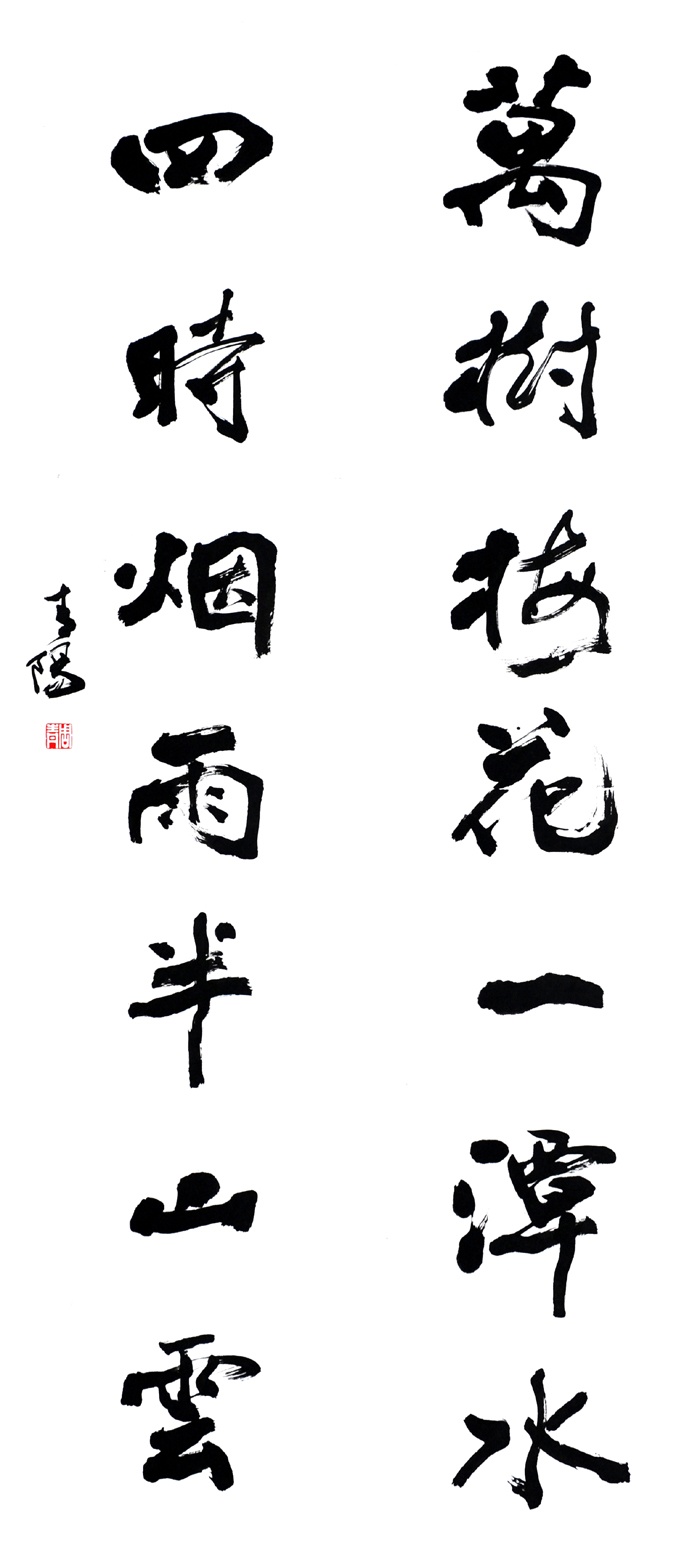 萬樹梅花一潭水
四時烟雨半山雲
青陽
周青